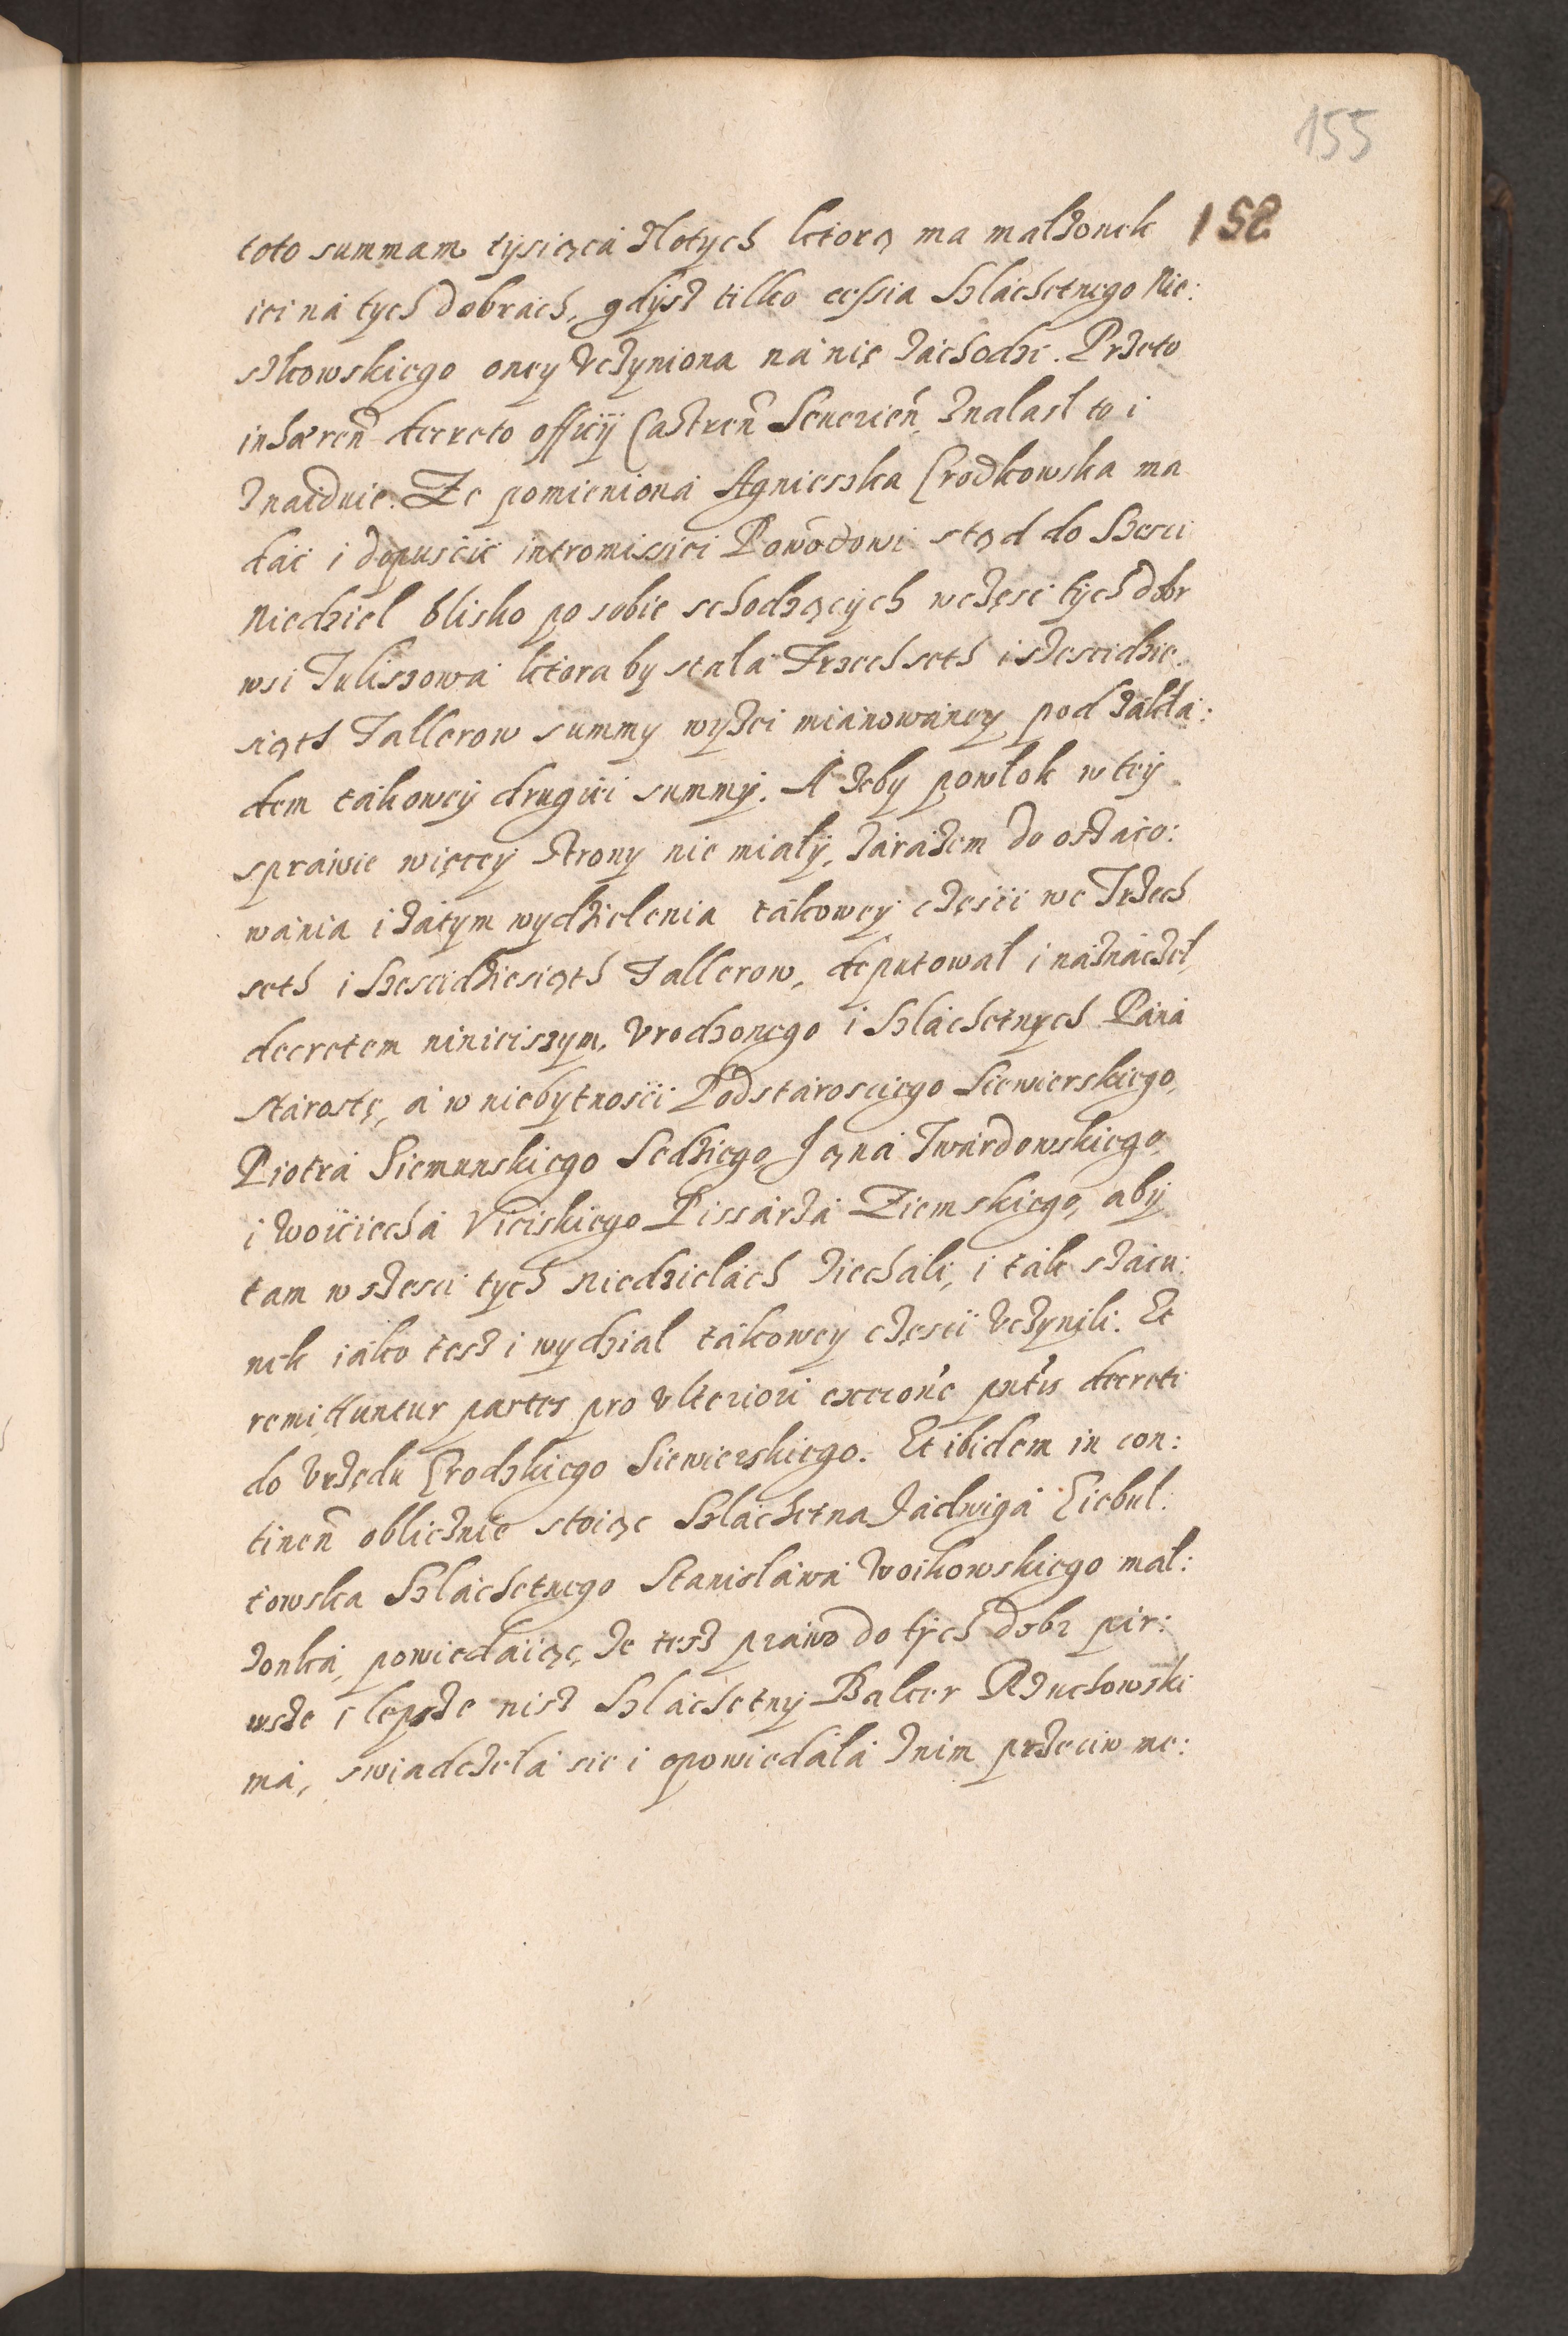 155
158
toto summam tysiącá złotych ktorą ma małżonek
iei ná tych dobrách, gdysz tilko cessia Szláchetnego Nie:
szkowskiego oney vczyniona ná nię záchodzi. Przeto
inhæreñ decreto officÿ Castreñ Seuerieñ, znalasł to i
znaiduie. Ze pomieniona Agnieszka Grodkowska ma
dác i dopuscic intromissiei Powodowi stąd do Szesci
Niedziel blisko po sobie schodzących wczęsci tych dobr
wsi Tuliszowá ktora by stałá Trzech seth i szescidzie
siąth Tallerow summy wyżei miánowáney pod zakłá:
dem tákowey drugiei summy. A żeby powłok w tey
spráwie więcey strony nie miały, zárázem do oszáco:
wánia i zátym wydzielenia tákowey częsci we Trzech
seth i Szescidziesiąth Tallerow, deputował i náznáczeł,
decretem ninieiszym, Vrodzonego i Szláchetnych Páná
Stárostę, á w niebytnosci Podstárosciego Siewierskiego,
Piotrá Siemunskiego Sedziego, Janá Twárdowskiego,
i Woiciechá Viciskiego Pissárzá Ziemskiego, aby
tam w szesci tych niedzielách ziecháli, i ták szácu:
nek iáko tesz i wydział tákowey częsci vczynili. Et
remittuntur partes pro vlteriori execione pntis decreti
do Vrzędu Grodzkiego Siewierskiego. Et ibidem in con:
tineñ obliczniè stoiąc Szláchetna Jádwigá Giebuł:
towska Szláchetnego Stánisłáwá Woikowskiego mał:
żonká, powiedáiiąc, że tesz práwo do tych dobr pir:
wsze i lepsze nisz Szláchetny Balcer Rżuchowski
má, swiadczełá sie i opowiedáłá z nim przeciw me: